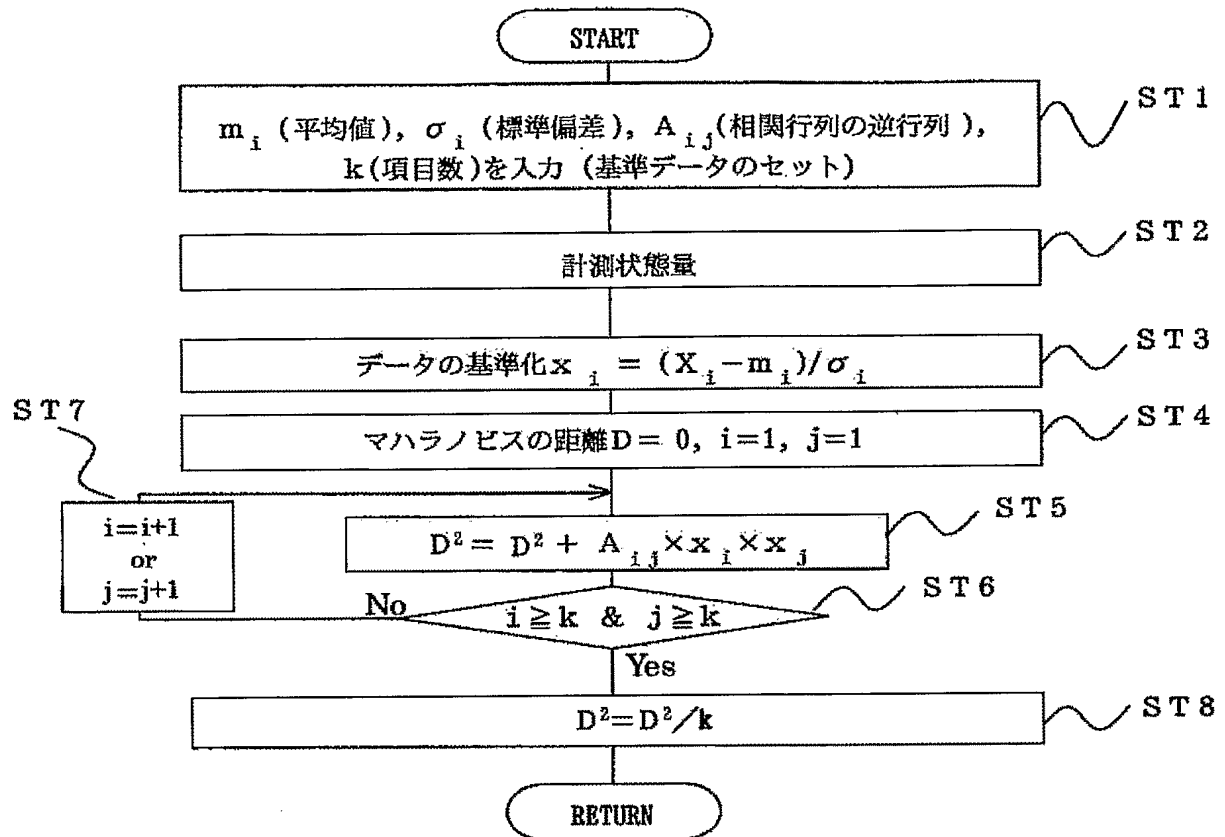 START
m_i (平均値), σ_i (標準偏差), A_ij(相関行列の逆行列),
k(項目数)を入力 (基準データのセット)
ST1
計測状態量
ST2
データの基準化x_i = (X_i-m_i)/σ_i
ST3
マハラノビスの距離D= 0, i=1, j=1
ST4
ST7
i=i+1
or
j=j+1
D²= D² + A_ij×x_i×x_j
ST5
i≧k & j≧k
ST6
No
Yes
D²=D²/k
ST8
RETURN